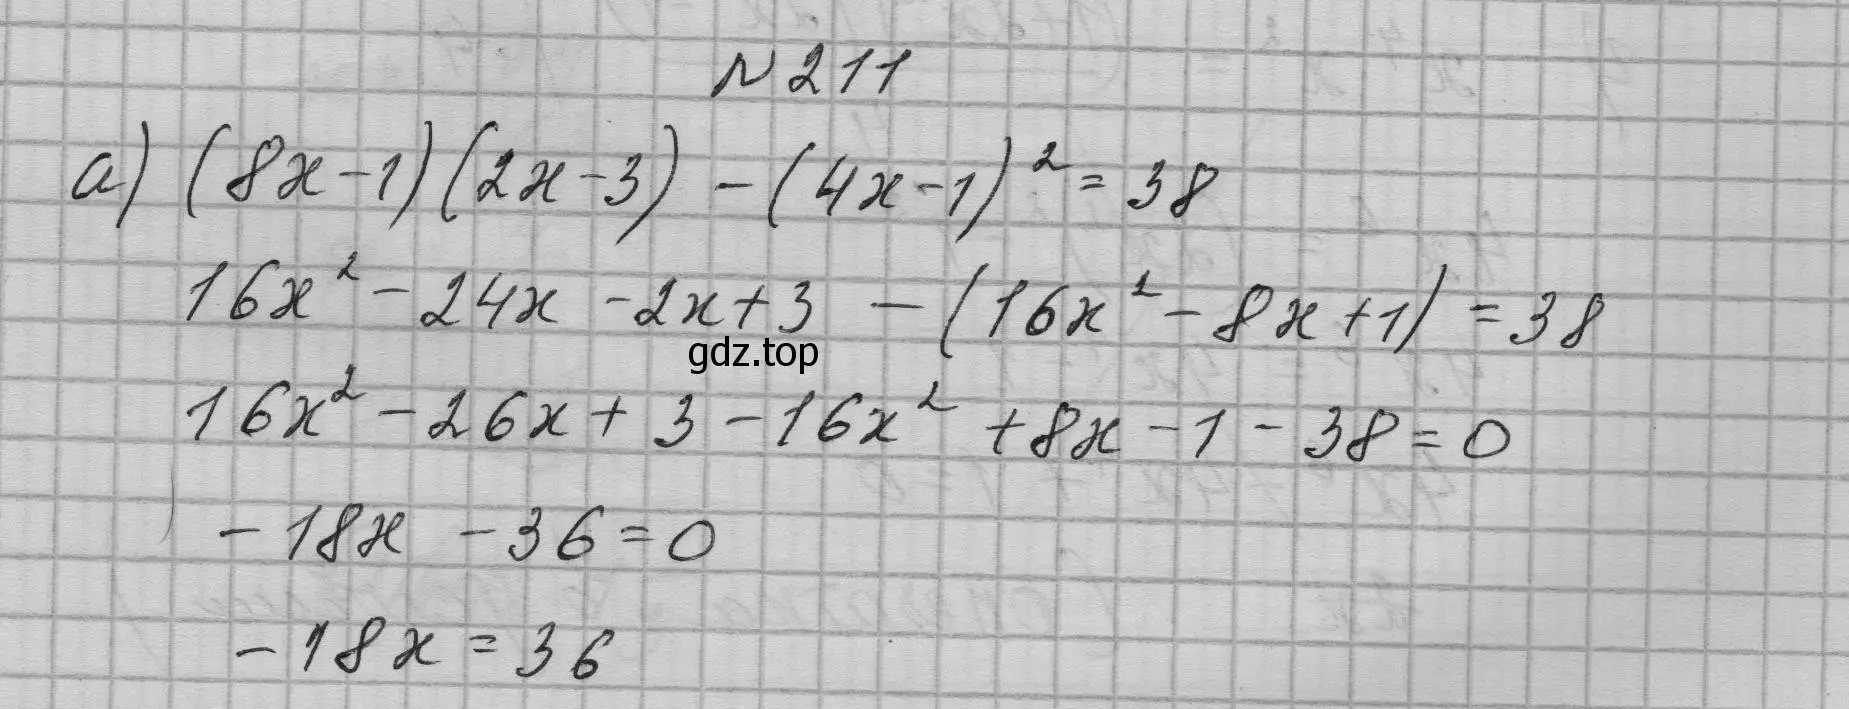 № 211
а) (8x-1)(2x-3) - (4x-1)² = 38
16x² - 24x - 2x + 3 - (16x² - 8x + 1) = 38
gdz.top
16x² - 26x + 3 - 16x² + 8x - 1 - 38 = 0
- 18x - 36 = 0
- 18x = 36